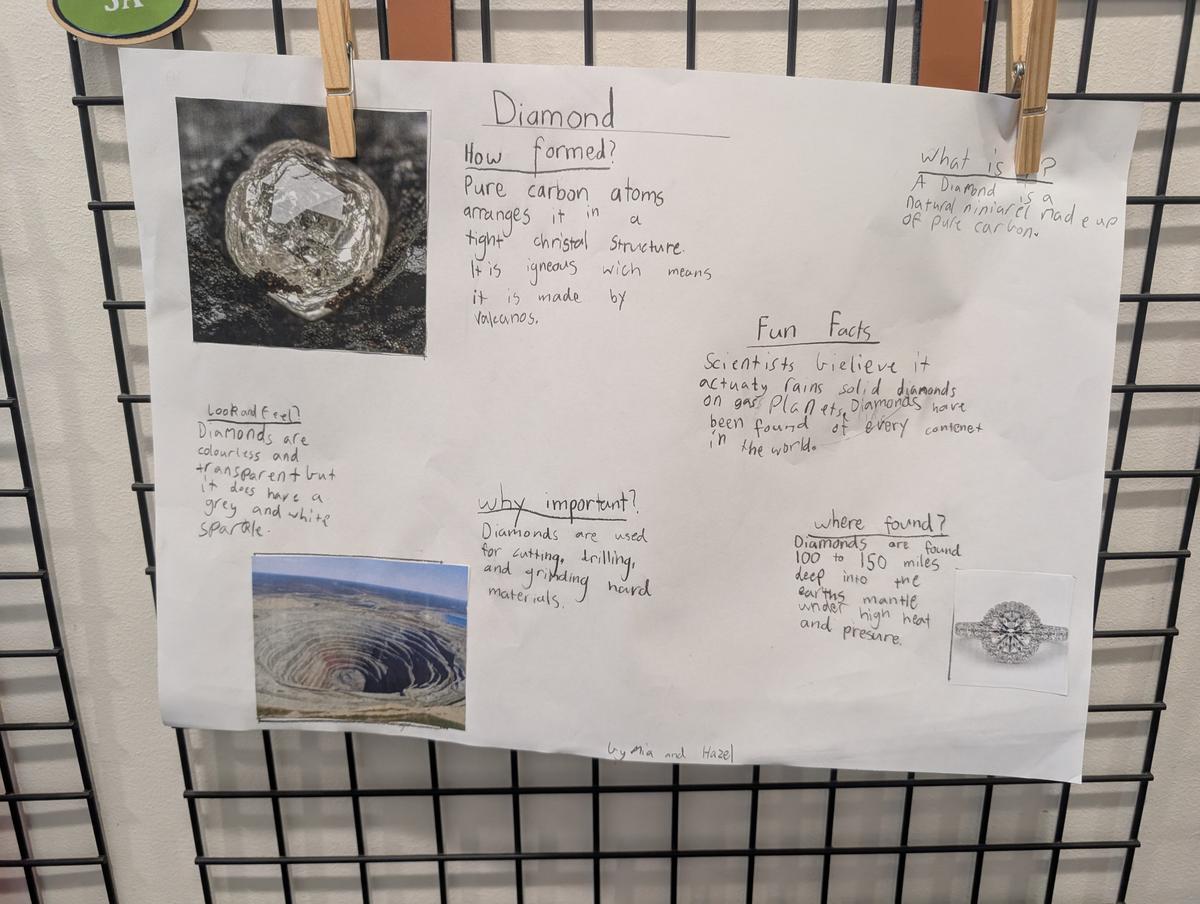 3A
Diamond
How formed?
Pure carbon atoms
arranges it in a
tight christal structure.
It is igneous wich means
it is made by
valcanos.
What is ?
A Diamond is a
natural niniarel made up
of pure carbon.
Fun Facts
Scientists bielieve it
actualy rains solid diamonds
on gas Planets. Diamonds have
been found of every contenet
in the world.
Look and Feel?
Diamonds are
colourless and
transparent but
it does have a
grey and white
sparkle.
why important?
Diamonds are used
for cutting, drilling,
and grinding hard
materials.
where found?
Diamonds are found
100 to 150 miles
deep into the
earths mantle
under high heat
and presure.
by Mia and Hazel